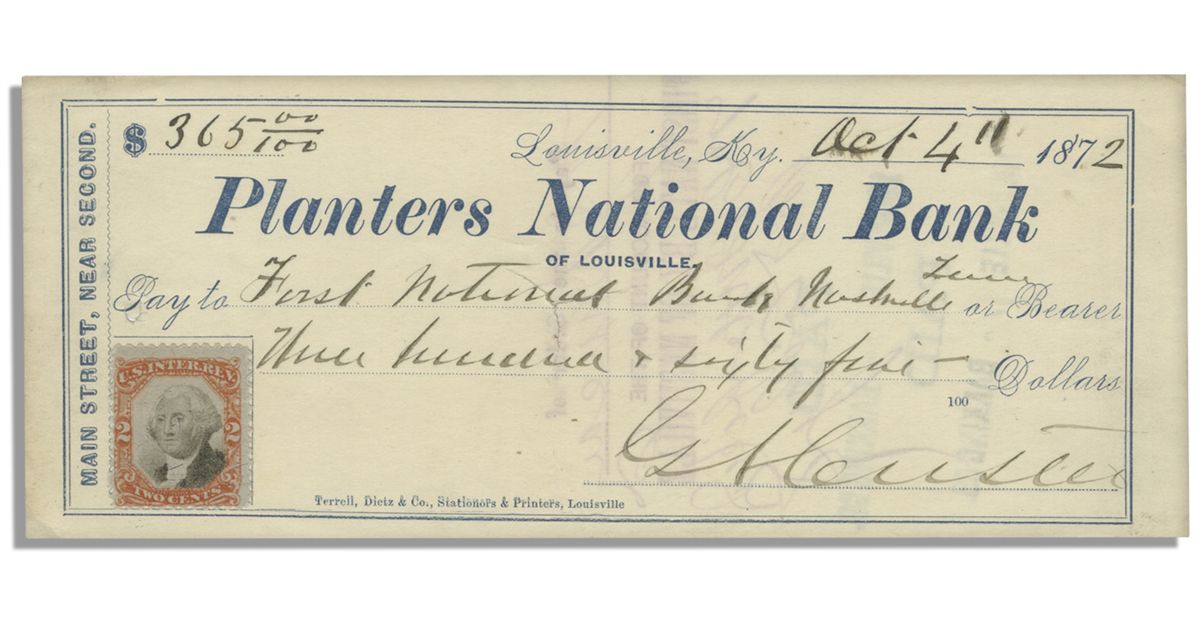 $ 365 00/100
Louisville, Ky. Oct 4th 1872
MAIN STREET, NEAR SECOND.
Planters National Bank
OF LOUISVILLE.
Pay to First National Bank Nashville Tenn or Bearer
Three hundred & sixty five — Dollars
100
U.S. INTER. REV.
2 2
TWO CENTS
G A Custer
Terrell, Dietz & Co., Stationers & Printers, Louisville